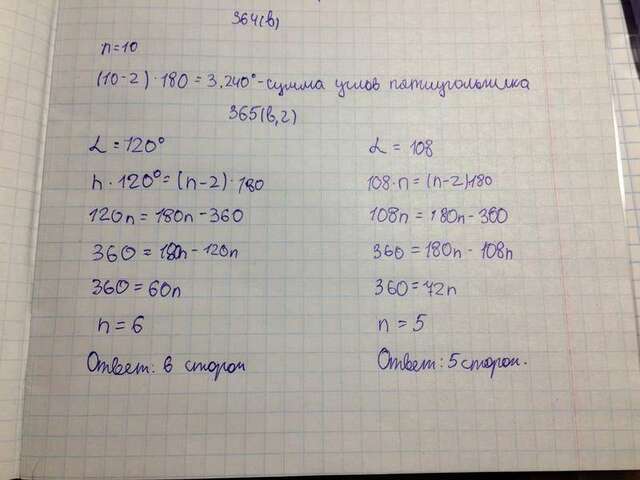 364(в)
n=10
(10-2)·180=3.240°-сумма углов пятиугольника
365(в,г)
α=120°
n·120°=(n-2)·180
120n=180n-360
360=180n-120n
360=60n
n=6
Ответ: 6 сторон
α=108
108·n=(n-2)180
108n=180n-360
360=180n-108n
360=72n
n=5
Ответ: 5 сторон.